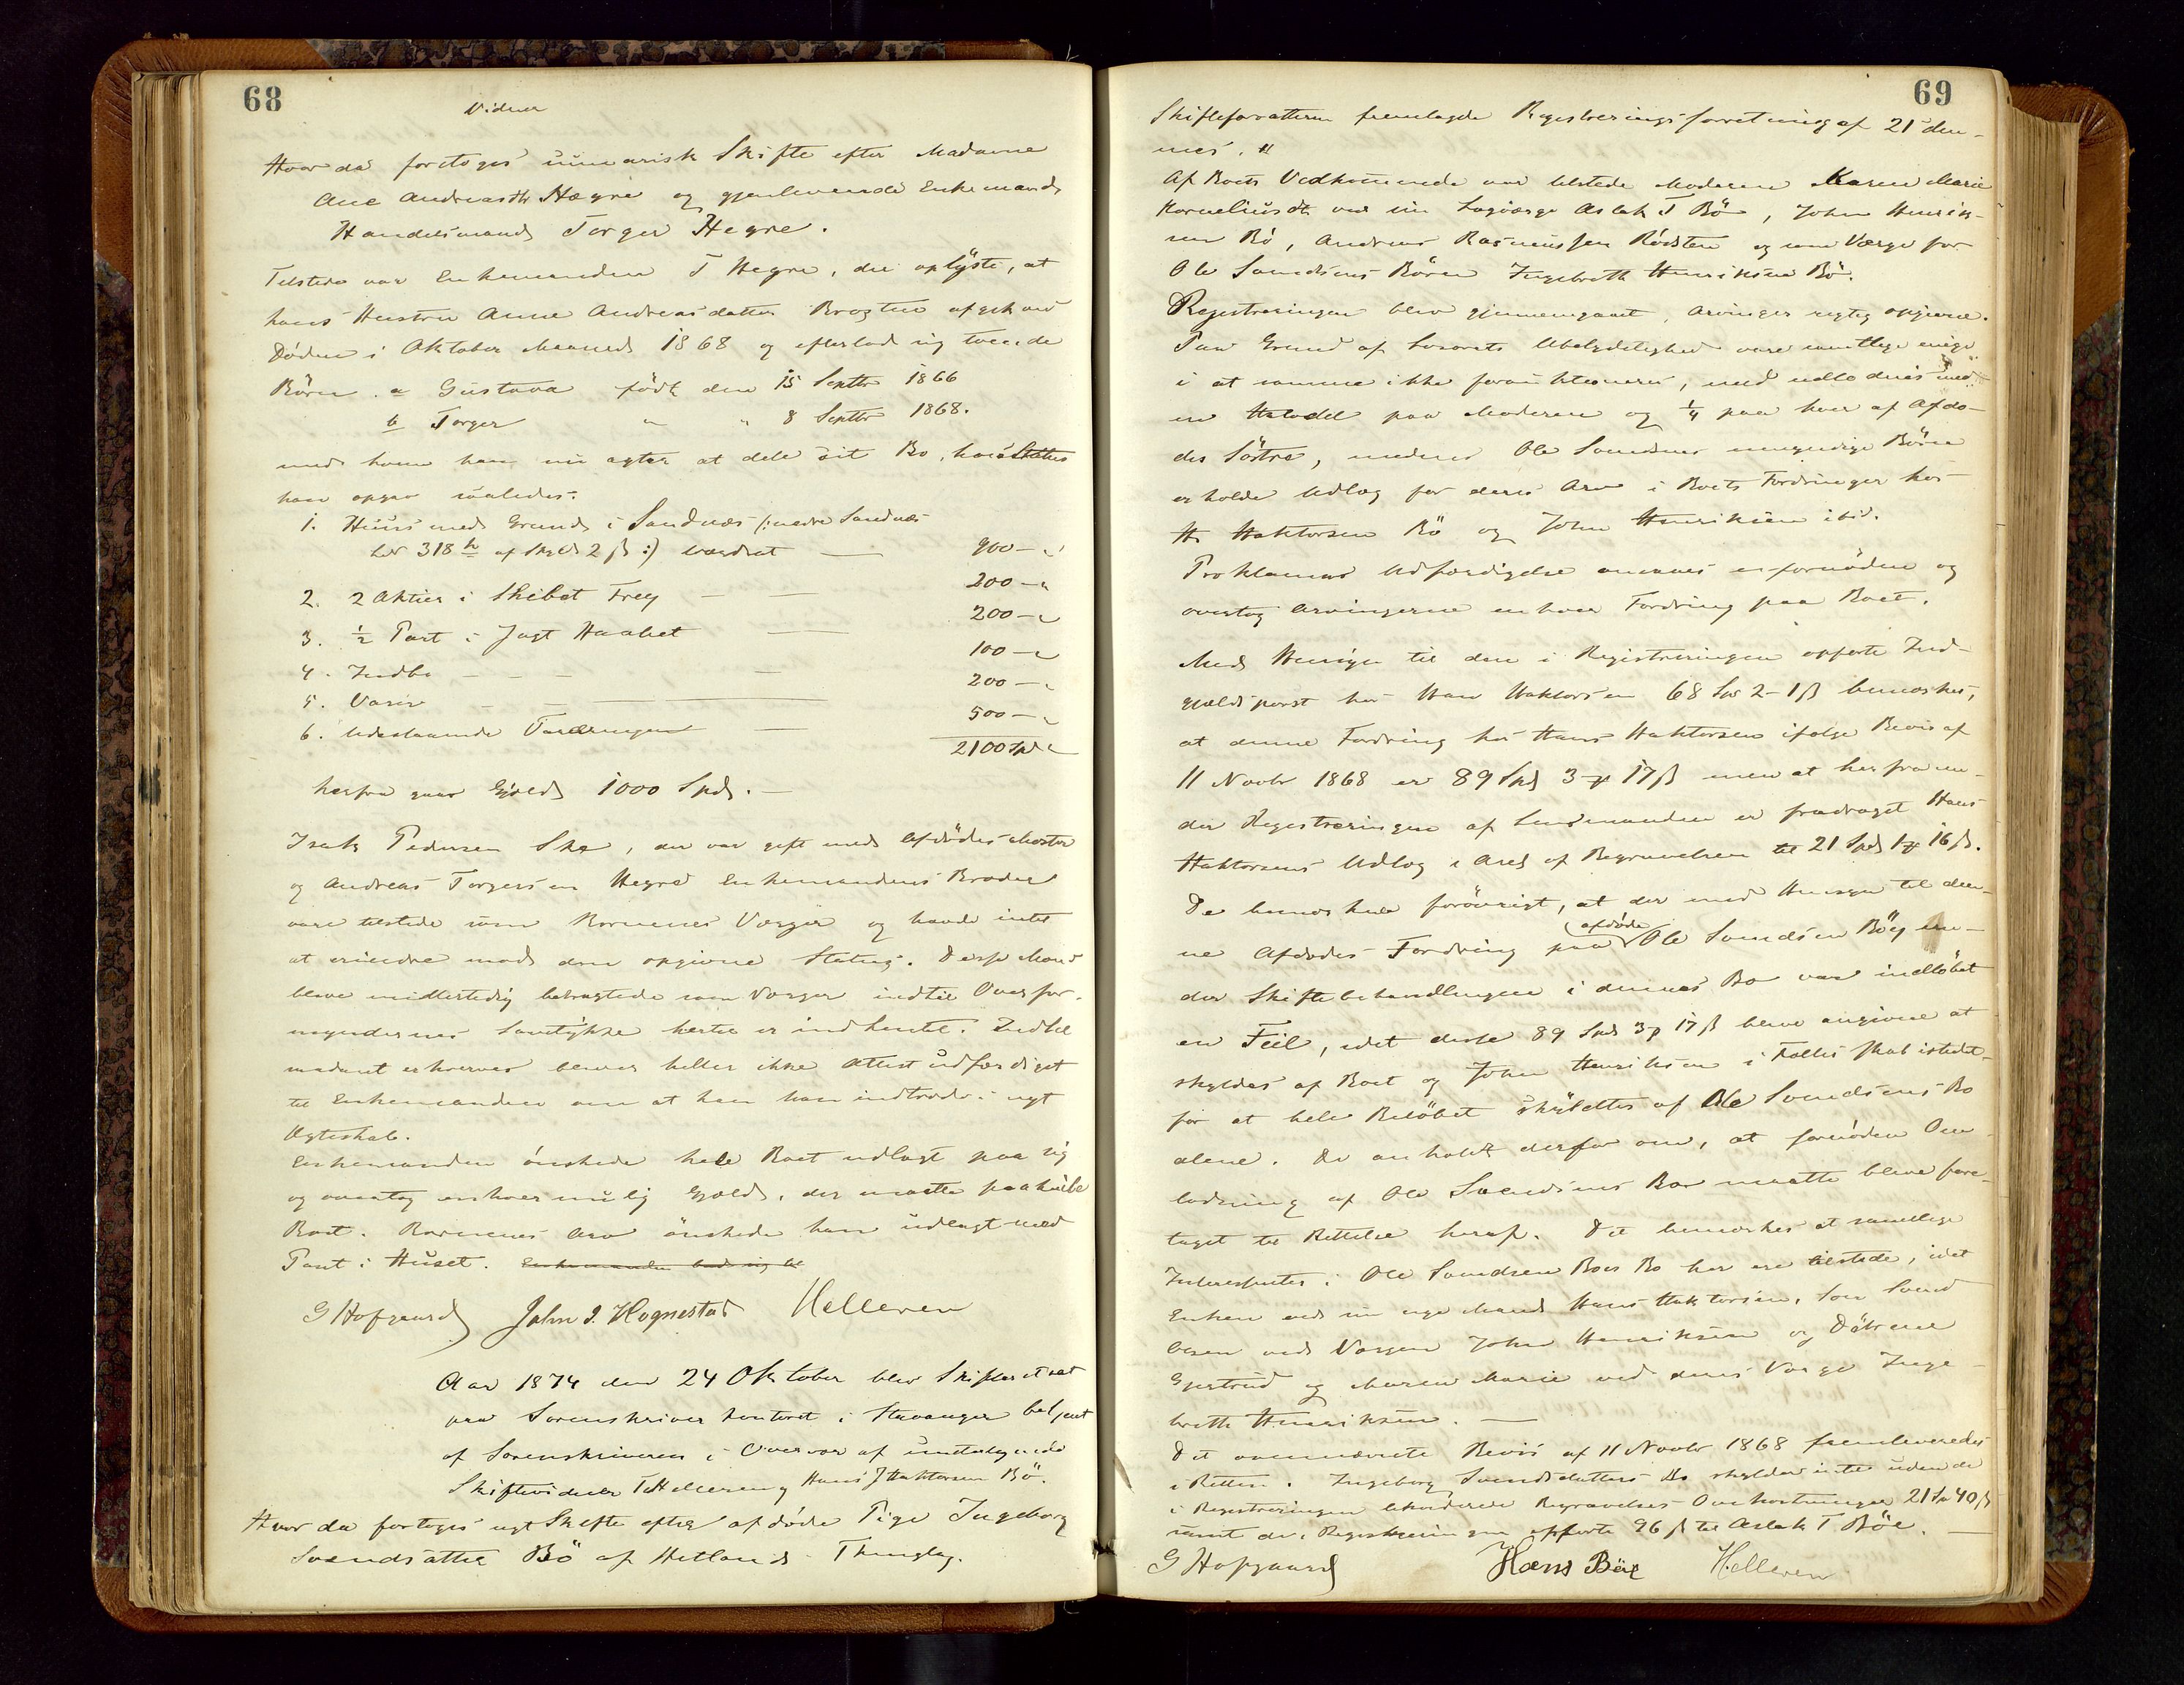 68
Vidner
Hvor da foretoges summarisk Skifte efter Madame
Ane Andreasdtr Hegre og gjenlevende Enkemand
Handelsmand Torger Hegre.
Tilstede var Enkemanden T Hegre, der oplyste, at
hans Hustru Anne Andreasdatter afgik ved
Døden i Oktober Maaned 1868 og efterlod sig tvende
Börn. a Gustava født den 15 Septbr 1866
b Torger " " 8 Septbr 1868.
med hvem han nu agter at dele sit Bo, hvis Status
han opgav saaledes:
1. Huus med Grund i Sandnæs (: nedre Sandnæs
318 b af Skyld 2 ß :) værdsat — 900 - "
2. 2 Aktier i Skibet Frey — — 200 - "
3. ½ Part i Jagt Haabet — 200 - "
4. Indbo — — — 100 - "
5. Varer — — 200 - "
6. Udestaaende Fordringer — 500 - "
2100 Spd "
herfra gaar Gjæld 1000 Spd. —
Isak Pedersen Skar, der var gift med Afdødes Moster
og Andreas Torgersen Hegre Enkemandens Broder
vare tilstede som Børnenes Værger og havde intet
at erindre mod den opgivne Status. Disse Mænd
bleve midlertidig betragtede som Værger indtil Overfor-
mynderens Samtykke hertil er indhentet. Indtil
saadant erhverves bliver heller ikke Attest udfærdiget
til Enkemanden om at han kan indtræde i nyt
Ægteskab.
Enkemanden ønskede hele Boet udlagt paa sig
og overtog enhver mulig Gjæld, der maatte paahvile
Boet. Børnenes Arv ønskede han udlagt med
Pant i Huset. Enkemanden bad sig til
G Hofgaard John J. Hognestad Helleren
Aar 1874 den 24 Oktober blev Skifteret sat
paa Sorenskriver Kontoret i Stavanger betjent
af Sorenskriveren i Overvær af undertegnede
Skiftevidner T Helleren og Hans Haktorsen Bö.
Hvor da foretoges nyt Skifte efter afdøde Pige Ingeborg
Svendsdatter Bö af Hetlands Thinglag.
69
Skifteforvalteren fremlagde Registreringsforretning af 21 den-
nes. "
Af Boets Vedkommende var tilstede Moderen Karen Marie
Korneliusdtr ved sin Lagværge Aslak T Bö, John Henrik-
sen Bö, Andreas Rasmussen Rödsten og som Værge for
Ole Svendsens Börn Ingebreth Henriksen Bö.
Registreringen blev gjennemgaaet, Arvinger rigtig opgivne.
Paa Grund af Løsørets Ubetydelighed vare samtlige enige
i at samme ikke forauktioneres, med udlodnes med
en Halvdel paa Moderen og ¼ paa hver af Afdø-
des Söstre, medens Ole Svendsens umyndige Börn
erholde Udlæg for deres Arv i Boets Fordringer hos
H. Haktorsen Bö og John Henriksen ibid.
Proklamas Udfærdigelse ansaaes ufornøden og
overtog Arvingerne enhver Fordring paa Boet.
Med Hensyn til den i Registreringen opførte Ind-
gjældspost hos Hans Haktorsen 68 Spd 2 - 1 ß bemærkes,
at denne Fordring hos Hans Haktorsen ifølge Bevis af
11 Novbr 1868 er 89 Spd 3 17 ß men at herfra un-
der Registreringen af Lensmanden er fradraget Hans
Haktorsens Udlæg i Anl. af Begravelsen til 21 Spd 1 16 ß.
De bemærkede forøvrigt, at der med Hensyn til den-
ne Afdødes Fordring paa (afdøde) Ole Svendsen Böe un-
der Skiftebehandlingen i dennes Bo var indløbet
en Feil, idet disse 89 Spd 3 17 ß bleve angivne at
skyldes af Boet og John Henriksen i Fælles skab istedet-
for at hele Beløbet skyldtes af Ole Svendsens Bo
alene. De anholdt derfor om, at fornøden Om-
lodning af Ole Svendsens Bo maatte blive fore-
taget til Rettelse heraf. Det bemærkes at samtlige
Interessenter i Ole Svendsen Böes Bo her ere tilstede, idet
Enken ved sin nye Mand Hans Haktorsen, Søn Svend
Olsen ved Værgen John Henriksen og Døtrene
Gjertrud og Maren Marie ved deres Værge Inge-
breth Henriksen. —
Det ovennævnte Bevis af 11 Novbr 1868 fremleveredes
i Retten. Ingeborg Svendsdatters Bo skylder intet uden de
i Registreringen Begravelses Omkostninger 21 Spd 40 ß
samt de i Registreringen opførte 96 ß til Aslak T Böe. —
G Hofgaard Hans Böe Helleren